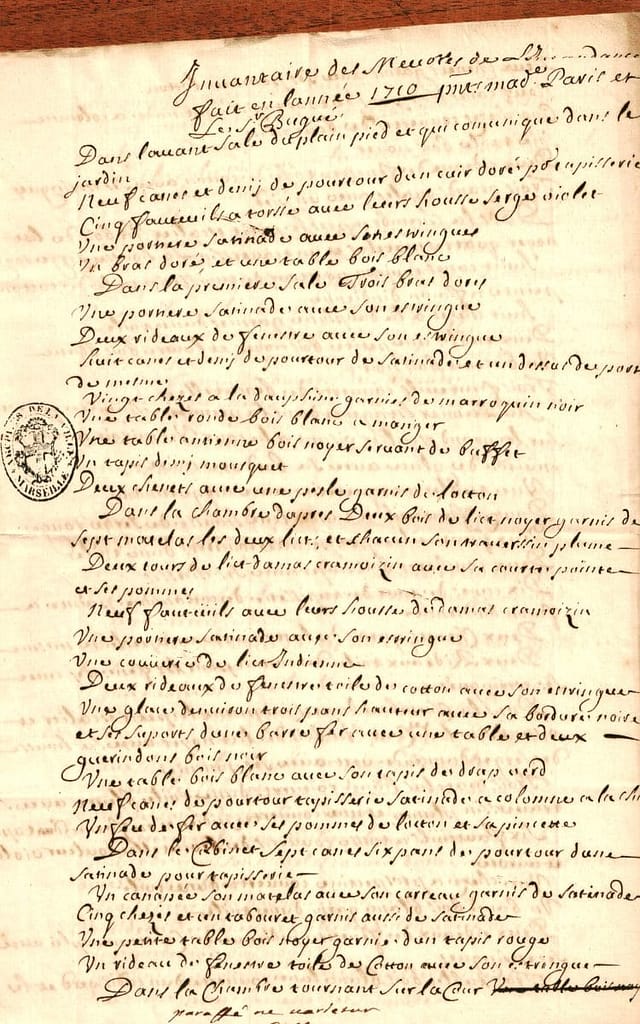 Inuantaire des Meubles de Lintandance
fait en lannée 1710 pnts mad.e Paris et
Le Sr Bugue
Dans lauant sale du plain pied et qui comunique dans le
jardin
Neuf canes et demj de pourtour dun cuir doré pr tapisserie
Cinq fauteuils a torse auec leurs housse serge violet
Vne portiere satinade auec ses estringues
Vn bras doré, et une table bois blanc
Dans la premiere sale Trois bras dores
Vne portiere satinade auec son estringue
Deux rideaux de fenestre auec son estringue
huit canes et demj de pourtour de satinade et un dessus de port
de mesme
Vingt chezes a la dauphine garnies de marroquin noir
Vne table ronde bois blanc a manger
Vne table antienne bois noyer seruant de buffet
Vn tapis demj mousquet
Deux chenets auec une pesle garnis de locton
Dans la chambre dapres Deux bois de lict noyer garnis de
sept matelas les deux licts, et chacun son trauerssin plume
Deux tours de lict damas cramoizin auec sa courte pointe
et ses pommes
Neuf fauteuils auec leurs housse de damas cramoizin
Vne portiere satinade auec son estringue
Vne couuerte de lict Indienne
Deux rideaux de fenestre toile de cotton auec son estringue
Vne glace denuiron trois pans hauteur auec sa bordure noire
et ses suports dune barre fer auec une table et deux
gueridons bois noir
Vne table bois blanc auec son tapis de drap verd
Neuf canes de pourtour tapisserie satinade a colomne a la ch
Vn feu de fer auec ses pommes de locton et sa pincette
Dans le Cabinet Sept canes six pans de pourtour dune
satinade pour tapisserie
Vn canapée son matelas auec son carreau garnis de satinade
Cinq chezes et un tabouret garnis aussi de satinade
Vne petite table bois noyer garnie dun tapis rouge
Vn rideau de fenestre toile de Cotton auec son estringue
Dans la Chambre tournant sur la Cour Vne table bois noy
paraffé ne varietur
ARCHIVES DE LA VILLE
MARSEILLE